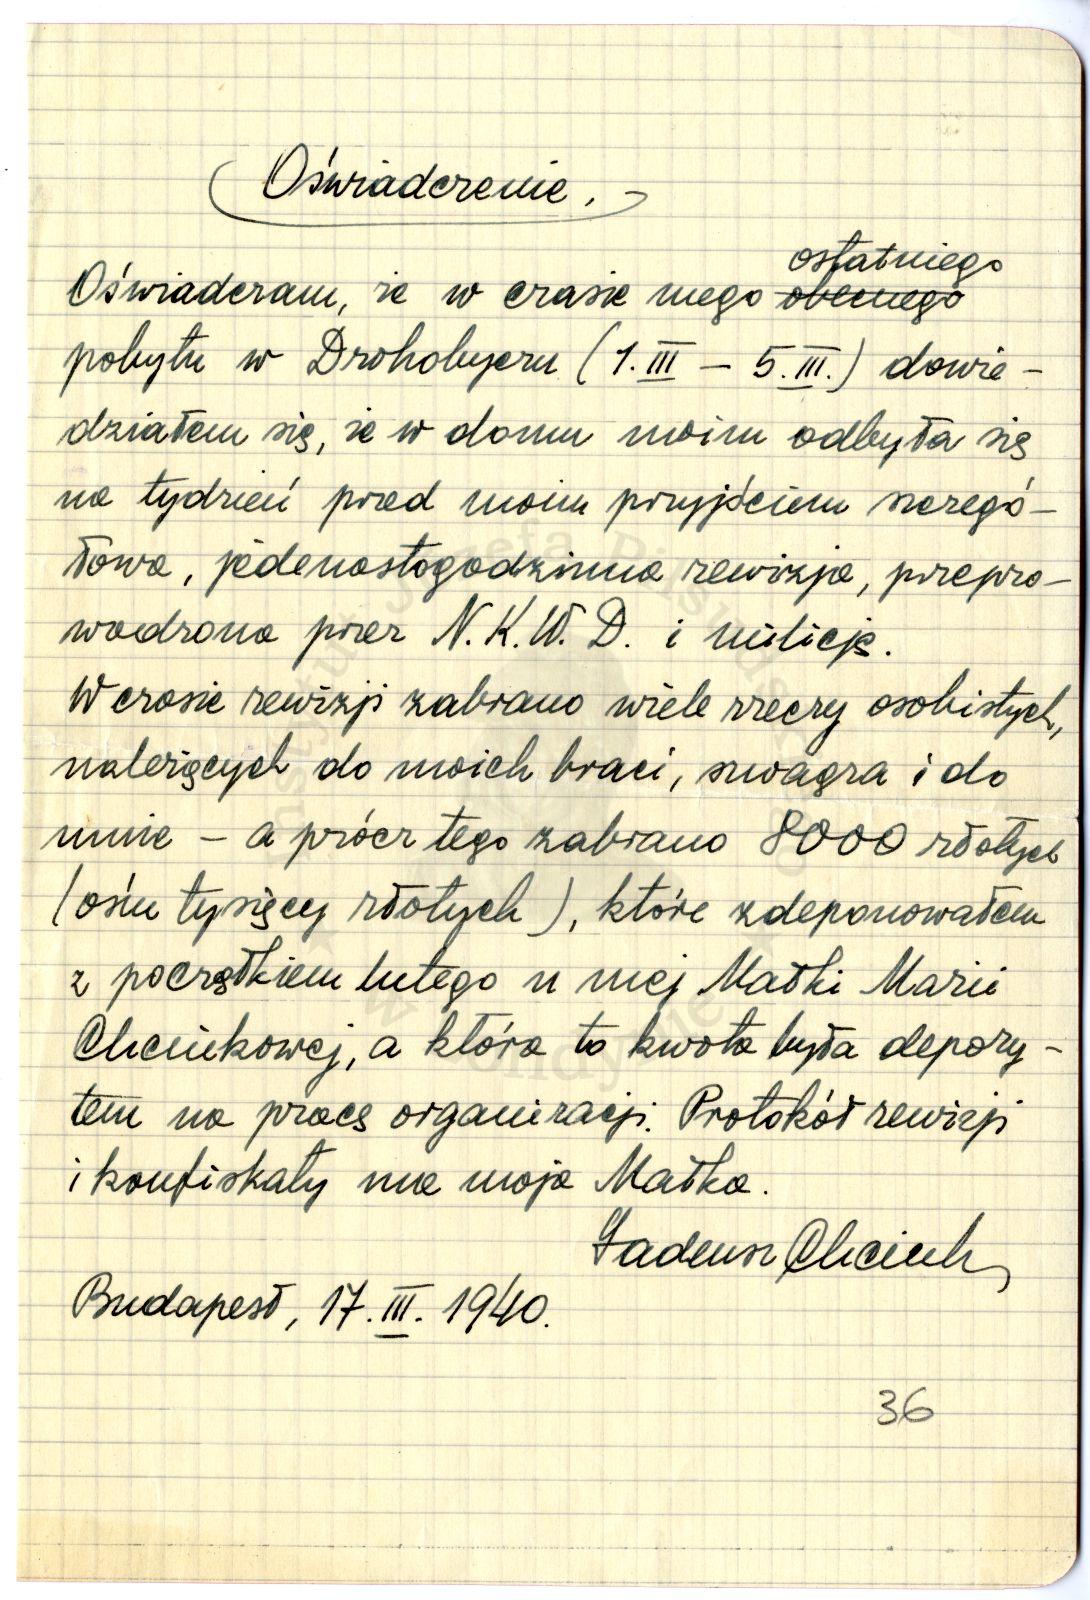 Oświadczenie.
Oświadczam, że w czasie mego ~~obecnego~~ ostatniego
pobytu w Drohobyczu (1.III – 5.III.) dowie-
działem się, że w domu moim odbyła się
na tydzień przed moim przyjściem szczegó-
łowa, jedenastogodzinna rewizja, przepro-
wadzona przez N.K.W.D. i milicję.
W czasie rewizji zabrano wiele rzeczy osobistych,
należących do moich braci, szwagra i do
mnie – a prócz tego zabrano 8000 złotych
(ośm tysięcy złotych), które zdeponowałem
z początkiem lutego u mej Matki Marii
Chciukowej, a która to kwota była depozy-
tem na pracę organizacji. Protokół rewizji
i konfiskaty ma moja Matka.
Tadeusz Chciuk
Budapest, 17.III.1940.
36